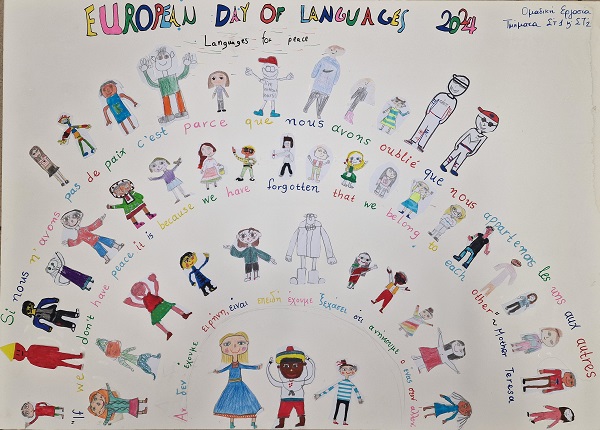 EUROPEAN DAY OF LANGUAGES 2024
Ομαδική Εργασία
Τμήματα ΣΤ1 & ΣΤ2
Languages for peace
Si nous n'avons pas de paix c'est parce que nous avons oublié que nous appartenons les uns aux autres
"If we don't have peace it is because we have forgotten that we belong to each other" ~ Mother Teresa
Αν δεν έχουμε ειρήνη, είναι επειδή έχουμε ξεχάσει ότι ανήκουμε ο ένας στον άλλον